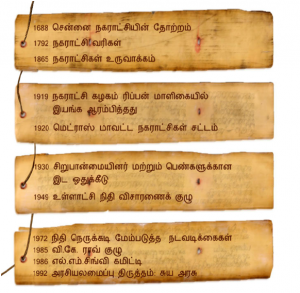 1688 சென்னை நகராட்சியின் தோற்றம்
1792 நகராட்சி வரிகள்
1865 நகராட்சிகள் உருவாக்கம்
1919 நகராட்சி கழகம் ரிப்பன் மாளிகையில்
இயங்க ஆரம்பித்தது
1920 மெட்ராஸ் மாவட்ட நகராட்சிகள் சட்டம்
1930 சிறுபான்மையினர் மற்றும் பெண்களுக்கான
இட ஒதுக்கீடு
1949 உள்ளாட்சி நிதி விசாரணைக் குழு
1972 நிதி நெருக்கடி மேம்படுத்த நடவடிக்கைகள்
1985 வி.கே. ராவ் குழு
1986 எல்.எம்.சிங்வி கமிட்டி
1992 அரசியலமைப்பு திருத்தம்: சுய அரசு